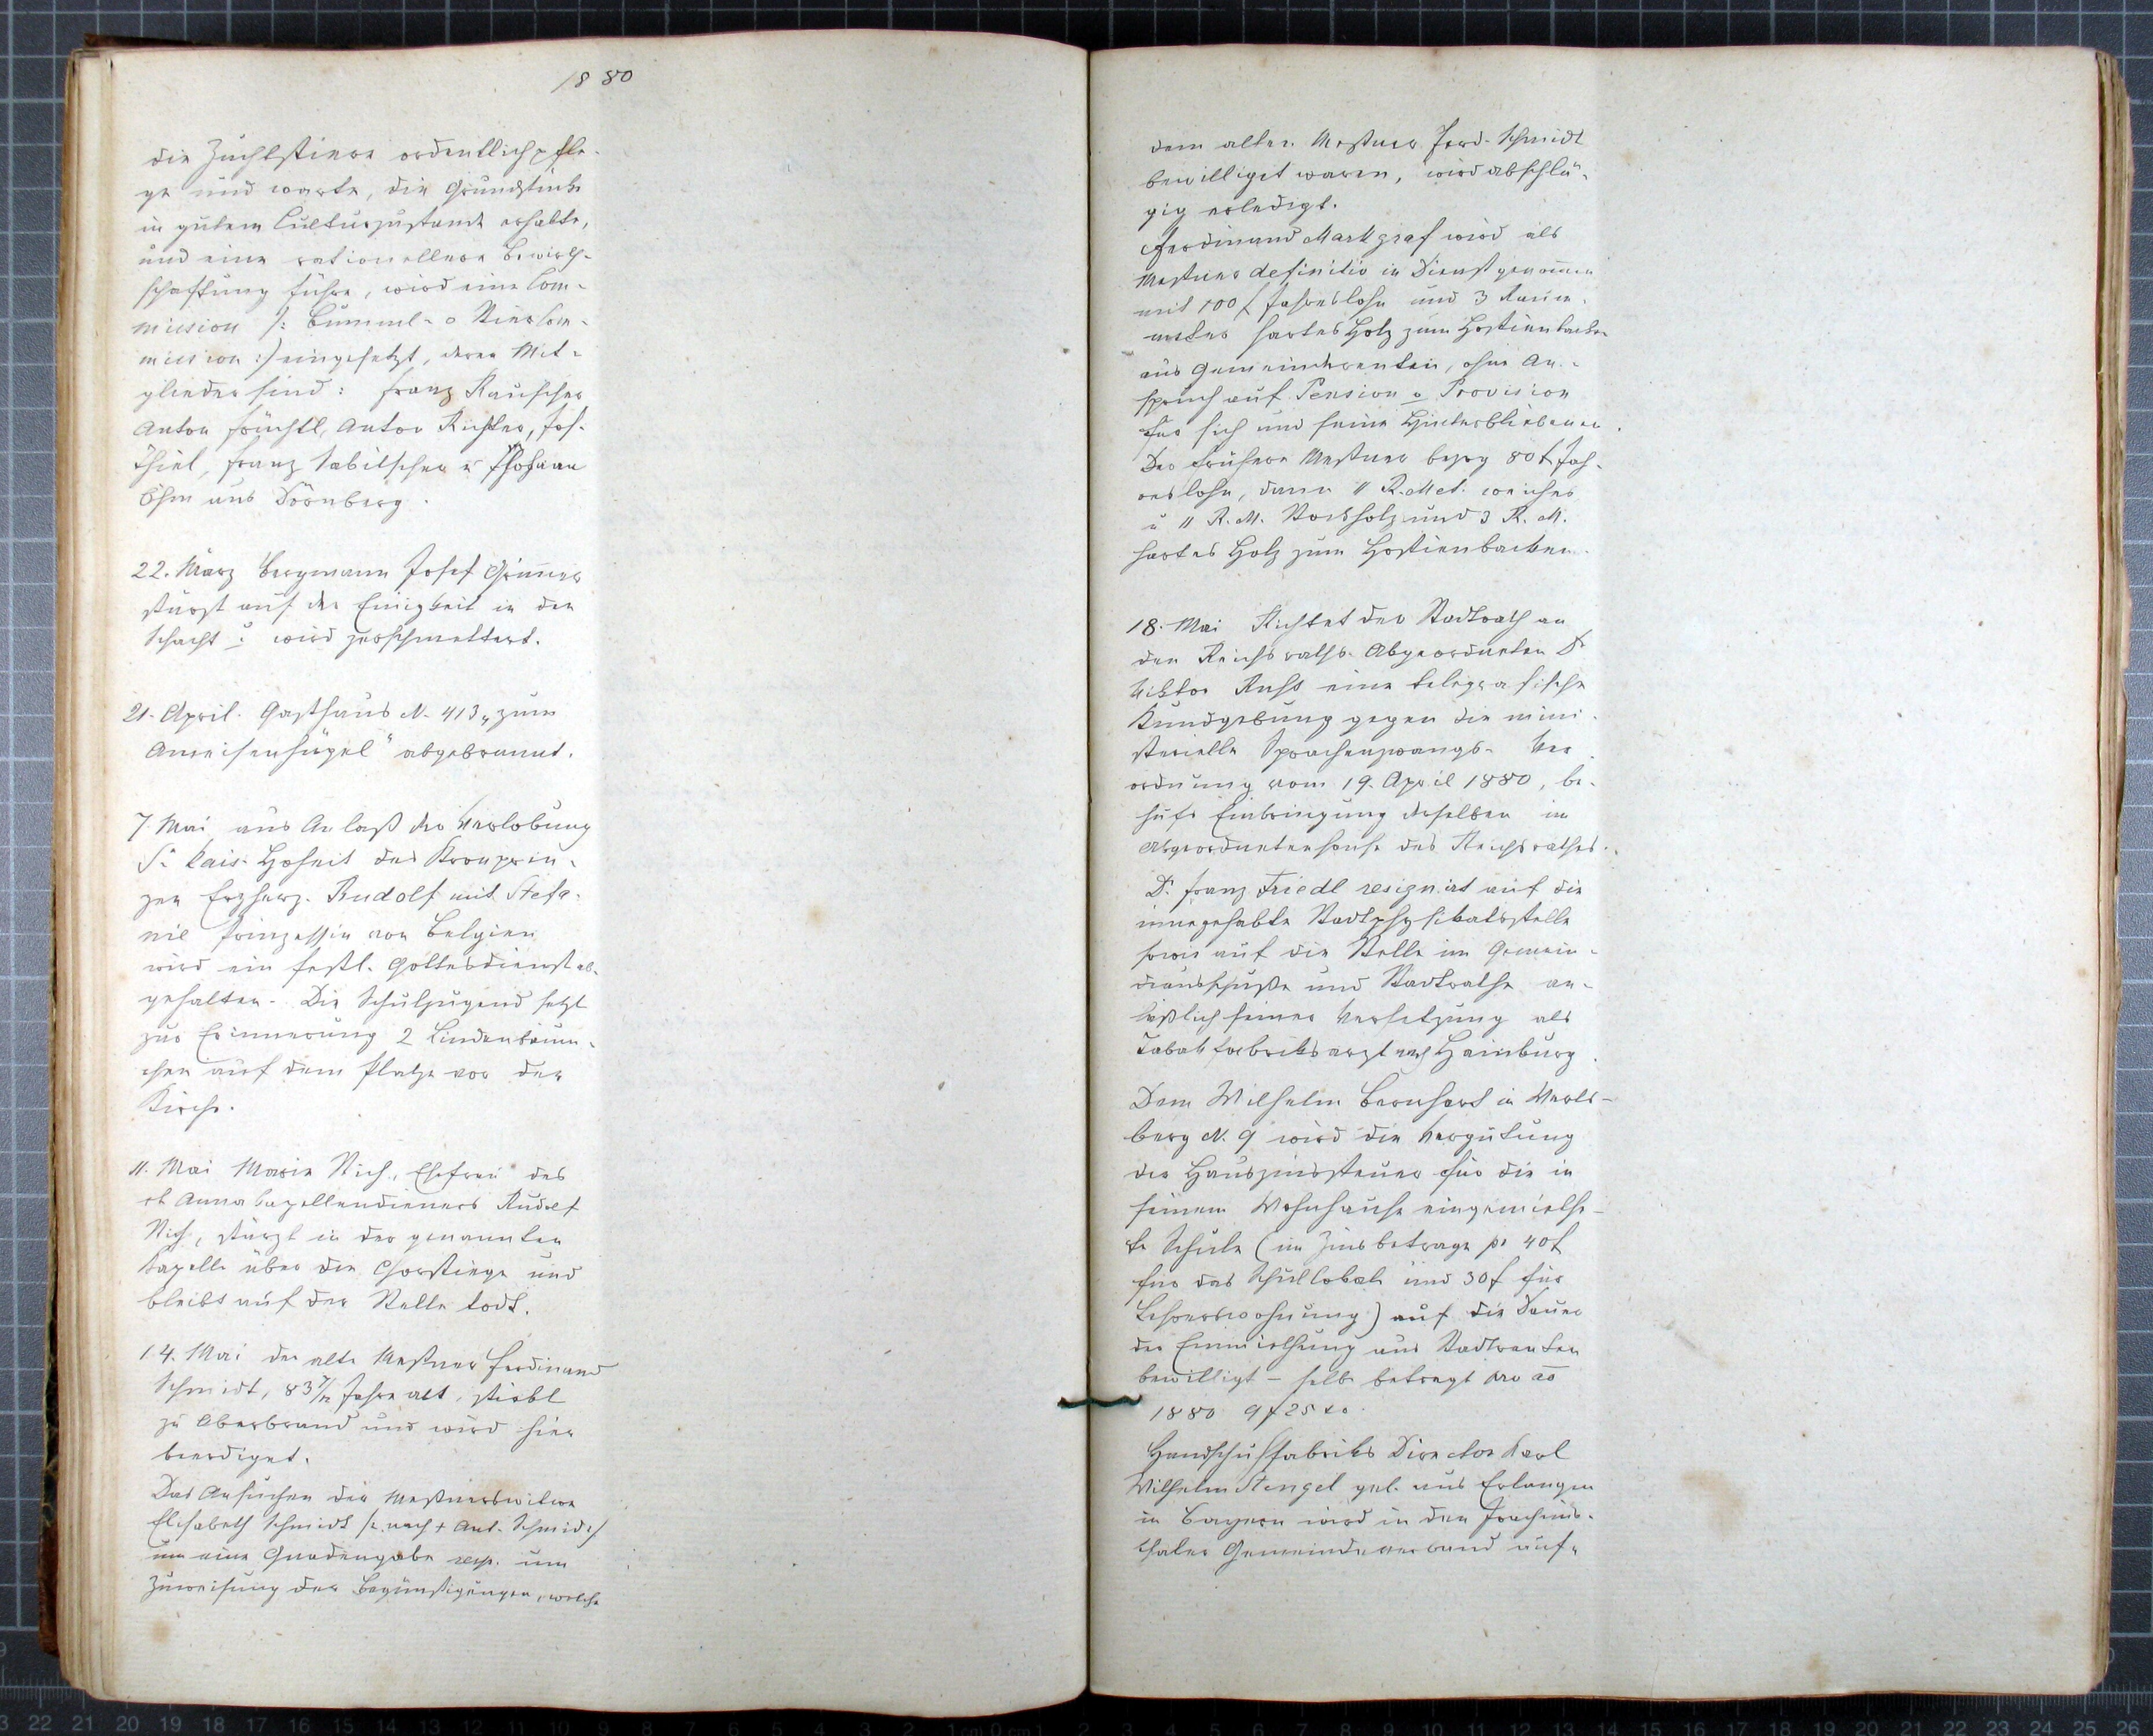 1880
die Zuchtstiere ordentlich pfle-
ge und warte, die Grundstücke
in gutem Culturzustande erhalte,
und eine rationellere Bewirth-
schaftung führe, wird eine Com-
mission /: Bummel- o Stiercom-
mission :/ eingesetzt, deren Mit-
glieder sind: Franz Rauscher
Anton Früchtl, Anton Richter, Jos.
Thiel, Franz Sabitscher u Johann
Öhm aus Dörnberg.
22. März Bergmann Josef Grimmer
stürzt auf der Einigkeit in den
Schacht u. wird zerschmettert.
21. April. Gasthaus N. 413 „zum
Ameisenhügel" abgebrannt.
7. Mai aus Anlaß der Verlobung
Sr. kais. Hoheit des Kronprin-
zen Erzherz. Rudolf mit Stefa-
nie Prinzessin von Belgien
wird ein festl. Gottesdienst ab-
gehalten. Die Schuljugend setzt
zur Erinnerung 2 Lindenbäum-
chen auf dem Platze vor der
Kirche.
11. Mai Marie Stich, Ehefrau des
st Annakapellendieners Rudolf
Stich, stürzt in der genannten
Kapelle über die Chorstiege und
bleibt auf der Stelle todt.
14. Mai der alte Meßner Ferdinand
Schmidt, 83 7/12 Jahre alt, stirbt
zu Oberbrand und wird hier
beerdiget.
Das Ansuchen der Meßnerswitwe
Elisabeth Schmidt /: nach † Ant. Schmidt :/
um eine Gnadengabe resp. um
Zuweisung der Begünstigungen, welche
dem alten Meßner Ferd. Schmidt
bewilliget waren, wird abschlä-
gig erledigt.
Ferdinand Markgraf wird als
Meßner definitiv in Dienst genommen
mit 100 f Jahreslohn und 3 Raum-
meter hartes Holz zum Hostienbacken
aus Gemeinderenten, ohne An-
spruch auf Pension o Provision
für sich und seine Hinterbliebenen.
Der frühere Meßner bezog 80 f Jah-
reslohn, dann 11 R. Met. weiches
u 11 R. M. Stockholz und 3 R. M.
hartes Holz zum Hostienbacken.
18. Mai Richtet der Stadtrath an
den Reichsraths-Abgeordneten Dr
Viktor Ruß eine telegrafische
Kundgebung gegen die mini-
sterielle Sprachenzwangs-Ver-
ordnung vom 19. April 1880, be-
hufs Einbringung derselben im
Abgeordnetenhause des Reichsrathes.
Dr. Franz Friedl resignirt auf die
innegehabte Stadtphysikatsstelle
sowie auf die Stelle im Gemein-
deausschuße und Stadtrathe an-
läßlich seiner Versetzung als
Tabakfabriksarzt nach Hainburg.
Dem Wilhelm Bernhard in Werls-
berg N. 9 wird die Vergütung
der Hauszinssteuer für die in
seinem Wohnhause eingemiethe-
te Schule (im Zinsbetrage pr 40 f
für das Schullokale und 30 f für
Lehrerswohnung) auf die Dauer
der Einmiethung aus Stadtrenten
bewilligt – selbe beträgt pro ao
1880 9 f 25 xr.
Handschuhfabriks Director Karl
Wilhelm Stengel geb. aus Erlangen
in Bayern wird in den Joachims-
thaler Gemeindeverband auf-